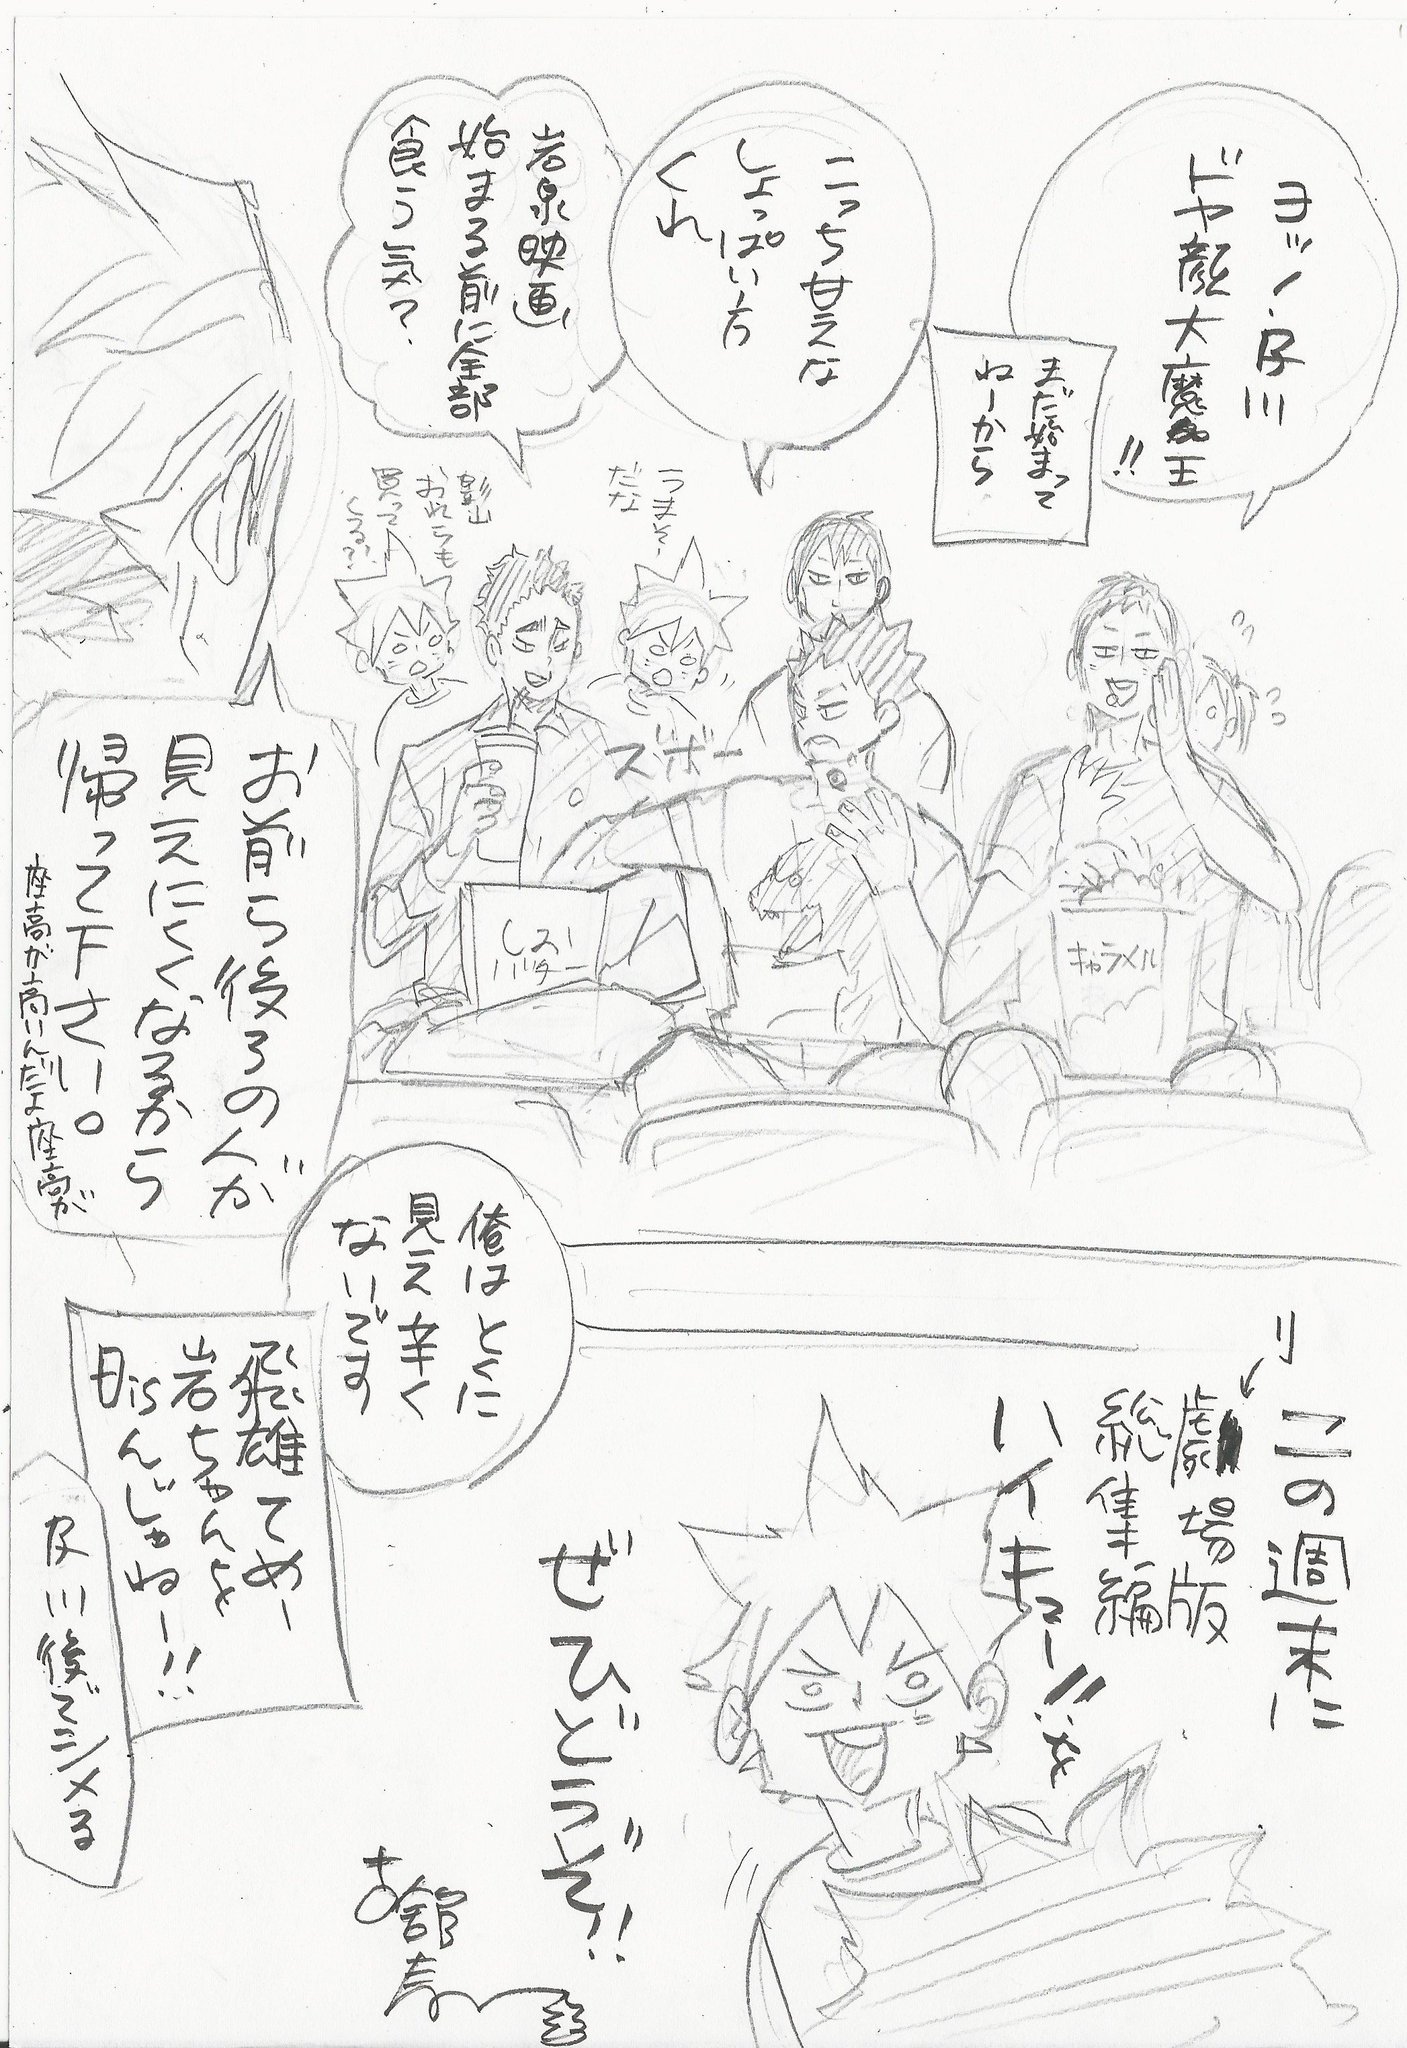 ヨッ!及川
ドヤ顔大魔王
!!
まだ始まって
ねーから
こっち甘えな
しょっぱい方
くれ
岩泉映画
始まる前に全部
食う気?
うまそー
だな
影山
おれらも
買って
くる??
ズボー
キャラメル
バター
お前ら後ろの人が
見えにくくなるから
帰って下さい。
座高が高いんだよ座高が
俺はとくに
見え辛く
ないです
飛雄てめー
岩ちゃんを
Disんじゃねー!!
及川後でシメる
この週末に
リ
劇場版
総集編
ハイキュー!!を
ぜひどうぞ!!
古舘春一